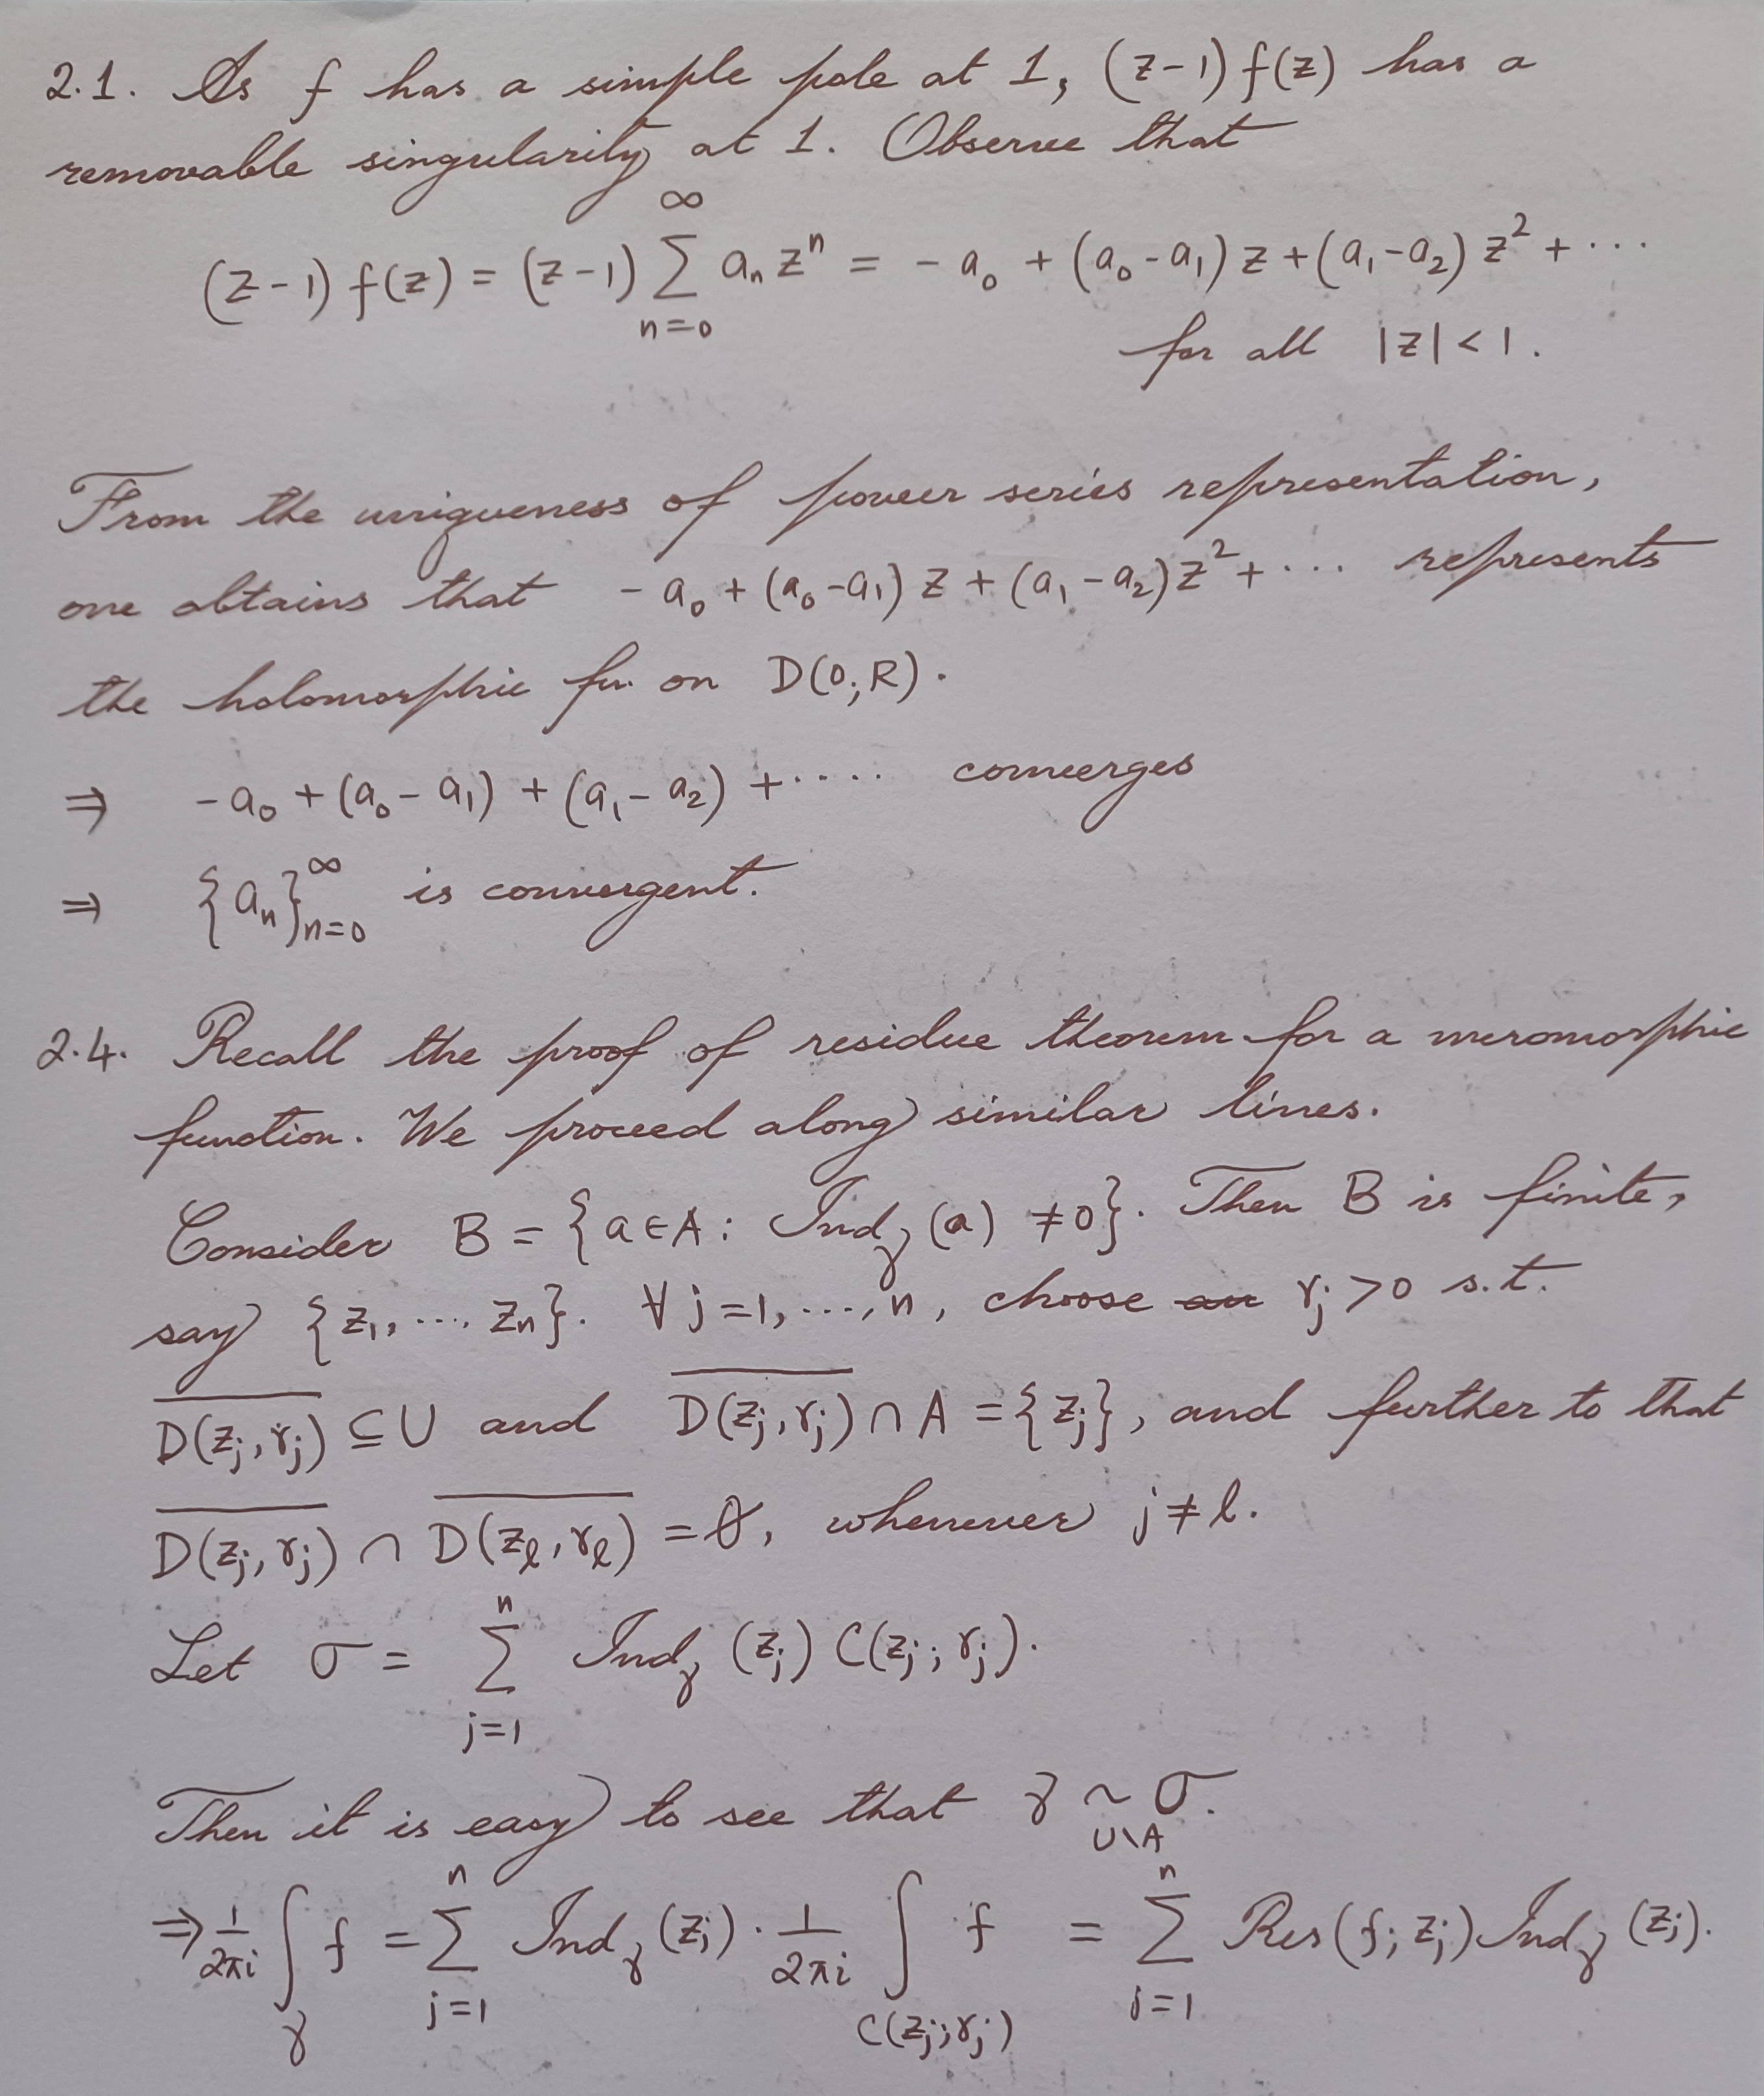 2.1. As f has a simple pole at 1, (z-1) f(z) has a
removable singularity at 1. Observe that
(z-1) f(z) = (z-1) ∑_{n=0}^{∞} a_n z^n = - a_0 + (a_0 - a_1) z + (a_1 - a_2) z^2 + ⋯
for all |z| < 1.
From the uniqueness of power series representation,
one obtains that - a_0 + (a_0 - a_1) z + (a_1 - a_2) z^2 + ⋯ represents
the holomorphic fn. on D(0; R).
⇒ - a_0 + (a_0 - a_1) + (a_1 - a_2) + ⋯ converges
⇒ {a_n}_{n=0}^{∞} is convergent.
2.4. Recall the proof of residue theorem for a meromorphic
function. We proceed along similar lines.
Consider B = {a ∈ A : Ind_γ (a) ≠ 0}. Then B is finite,
say {z_1, ⋯, z_n}. ∀ j = 1, ⋯, n, choose ~~an~~ r_j > 0 s.t.
\overline{D(z_j, r_j)} ⊆ U and \overline{D(z_j, r_j)} ∩ A = {z_j}, and further to that
\overline{D(z_j, r_j)} ∩ \overline{D(z_ℓ, r_ℓ)} = ∅, whenever j ≠ ℓ.
Let σ = ∑_{j=1}^{n} Ind_γ (z_j) C(z_j; r_j).
Then it is easy to see that γ ∼_{U\A} σ.
⇒ \frac{1}{2πi} ∫_γ f = ∑_{j=1}^{n} Ind_γ (z_j) · \frac{1}{2πi} ∫_{C(z_j; r_j)} f = ∑_{j=1}^{n} Res(f; z_j) Ind_γ (z_j).